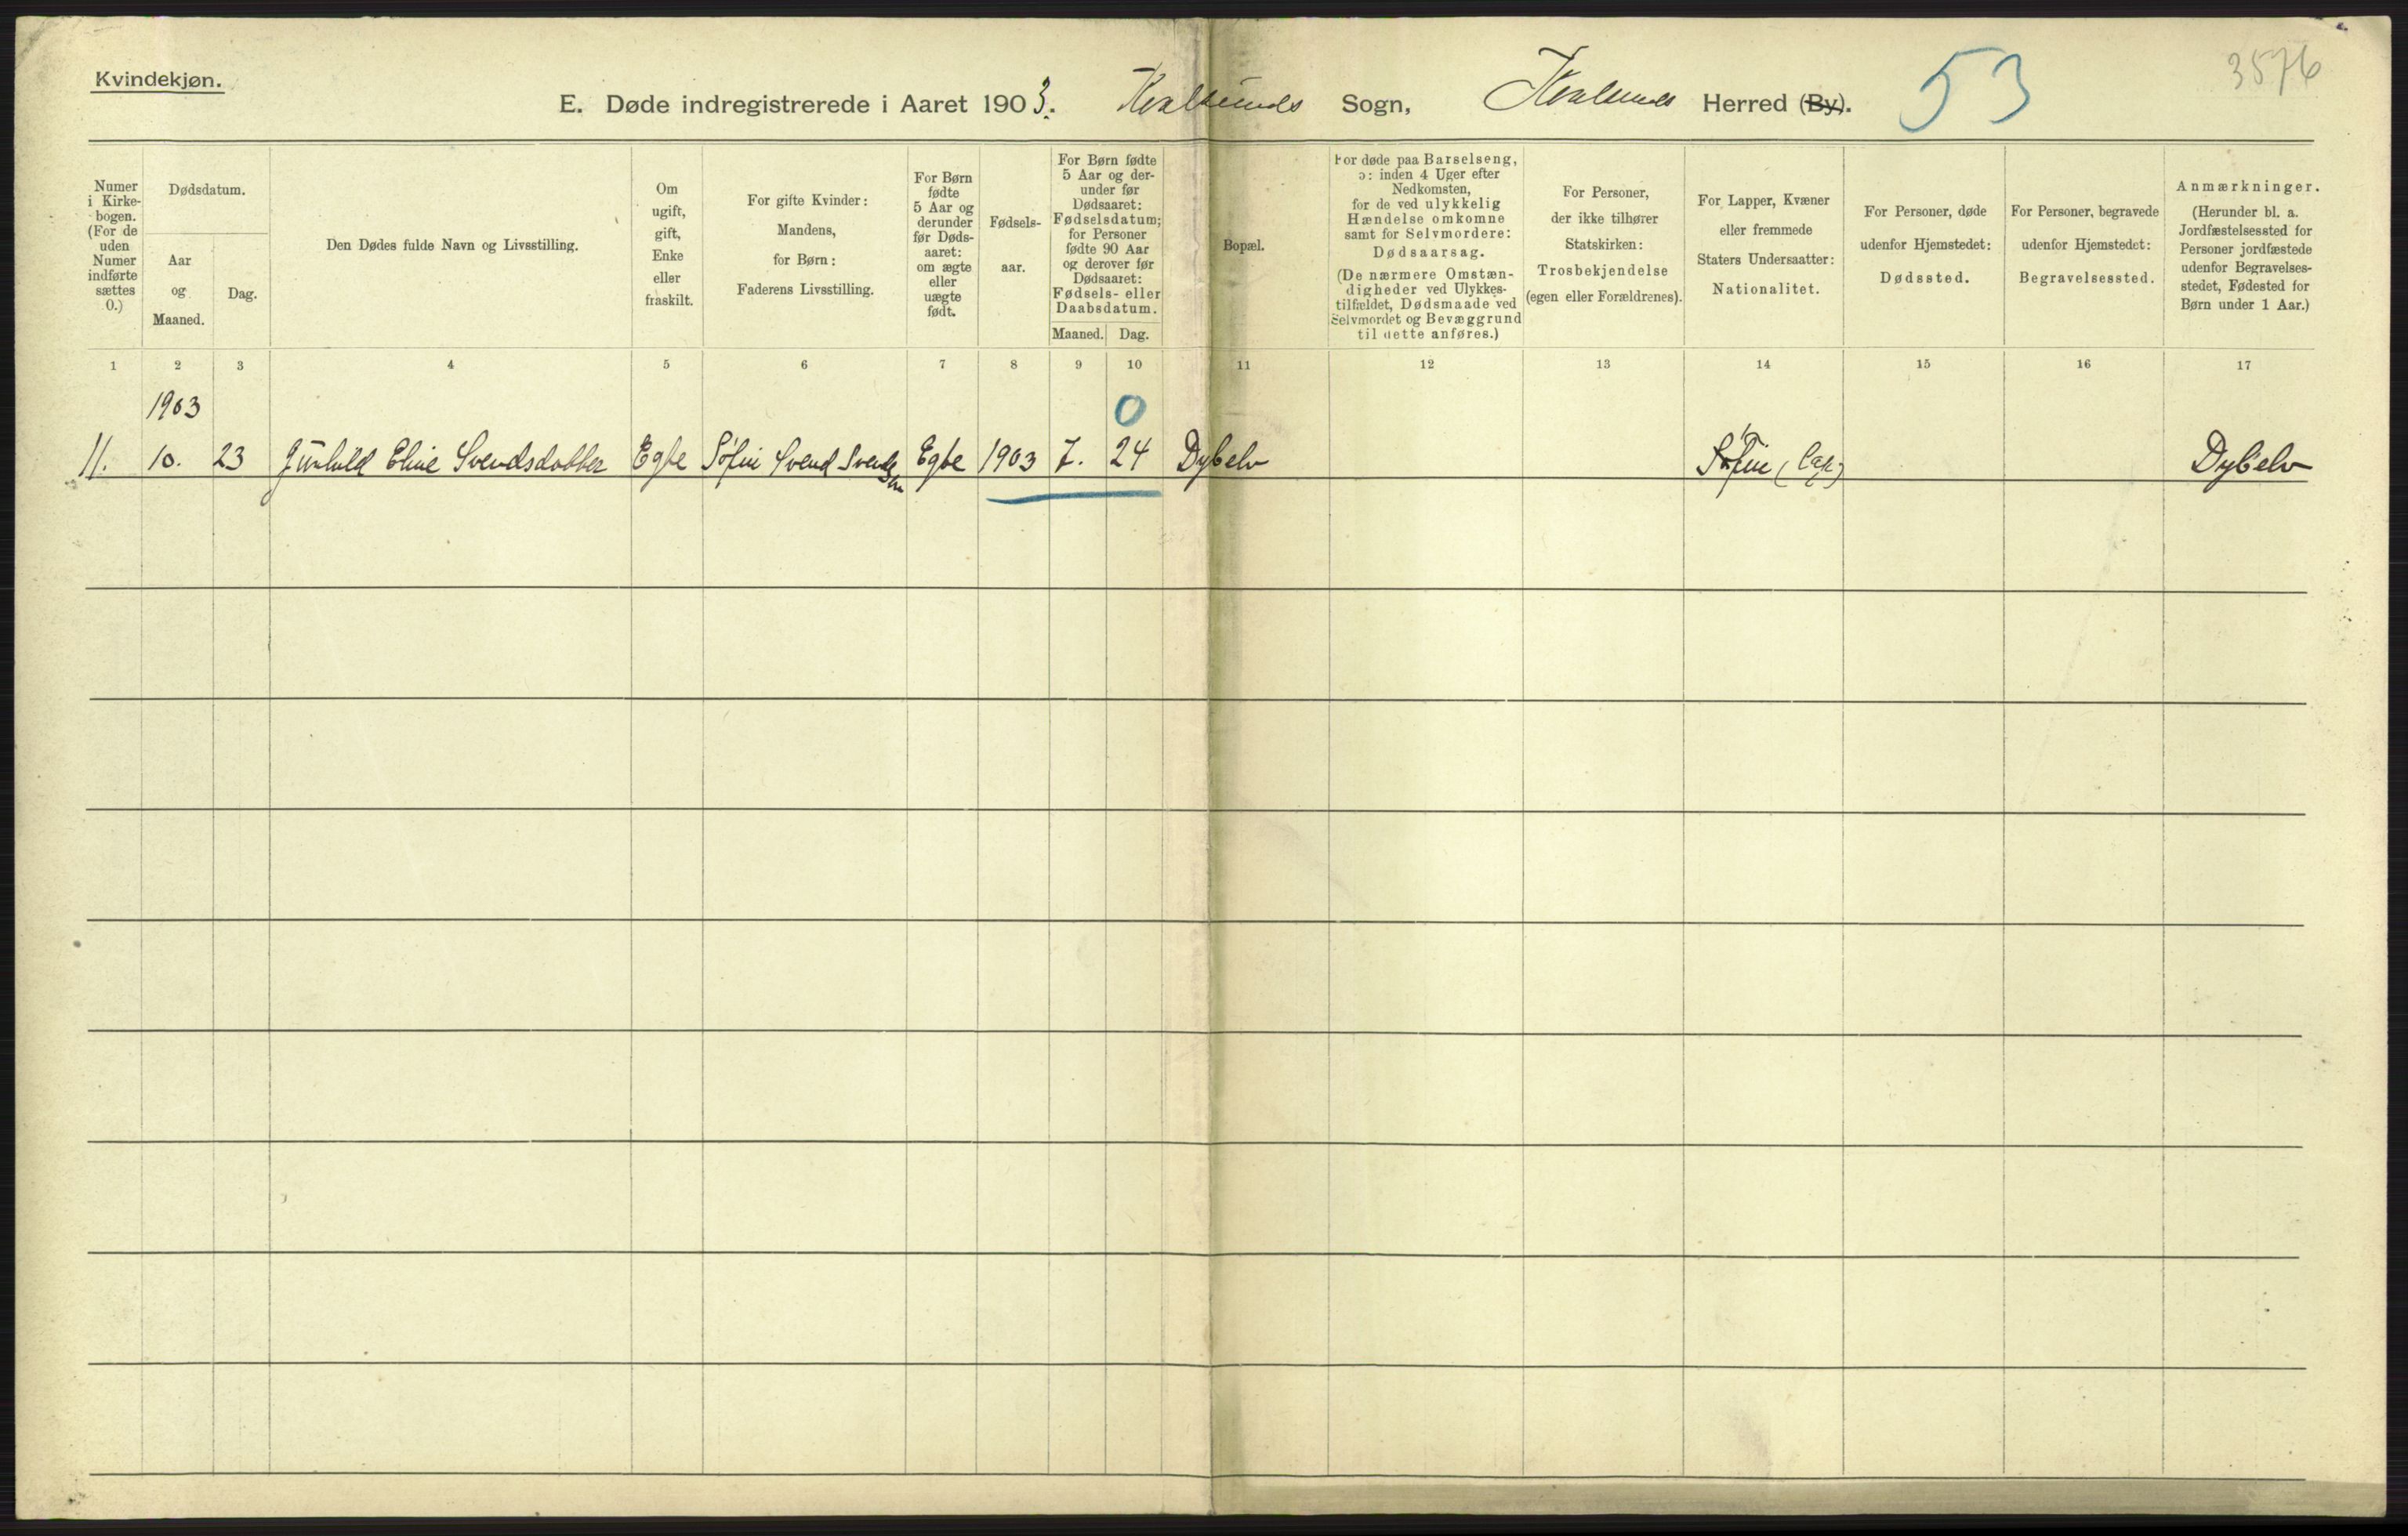 Kvindekjøn.
E. Døde indregistrerede i Aaret 1903. Kvalsunds Sogn, Kvalsunds Herred (By). 53 3576
Numer i Kirkebogen. (For de uden Numer indførte sættes 0.)
Dødsdatum.
Aar og Maaned.
Dag.
Den Dødes fulde Navn og Livsstilling.
Om ugift, gift, Enke eller fraskilt.
For gifte Kvinder: Mandens, for Børn: Faderens Livsstilling.
For Børn fødte 5 Aar og derunder før Dødsaaret: om ægte eller uægte født.
Fødselsaar.
For Børn fødte 5 Aar og derunder før Dødsaaret: Fødselsdatum; for Personer fødte 90 Aar og derover før Dødsaaret: Fødsels- eller Daabsdatum.
Maaned. Dag.
Bopæl.
For døde paa Barselseng, ɔ: inden 4 Uger efter Nedkomsten, for de ved ulykkelig Hændelse omkomne samt for Selvmordere: Dødsaarsag. (De nærmere Omstændigheder ved Ulykkestilfældet, Dødsmaade ved Selvmordet og Bevæggrund til dette anføres.)
For Personer, der ikke tilhører Statskirken: Trosbekjendelse (egen eller Forældrenes).
For Lapper, Kvæner eller fremmede Staters Undersaatter: Nationalitet.
For Personer, døde udenfor Hjemstedet: Dødssted.
For Personer, begravede udenfor Hjemstedet: Begravelsessted.
Anmærkninger. (Herunder bl. a. Jordfæstelsessted for Personer jordfæstede udenfor Begravelsesstedet, Fødested for Børn under 1 Aar.)
1 2 3 4 5 6 7 8 9 10 11 12 13 14 15 16 17
1903 0
11. 10. 23 Gunhild Eline Svendsdatter Egte Søfin Svend Svendsen Egte 1903 7. 24 Dybelv Søfin (Lap) Dybelv